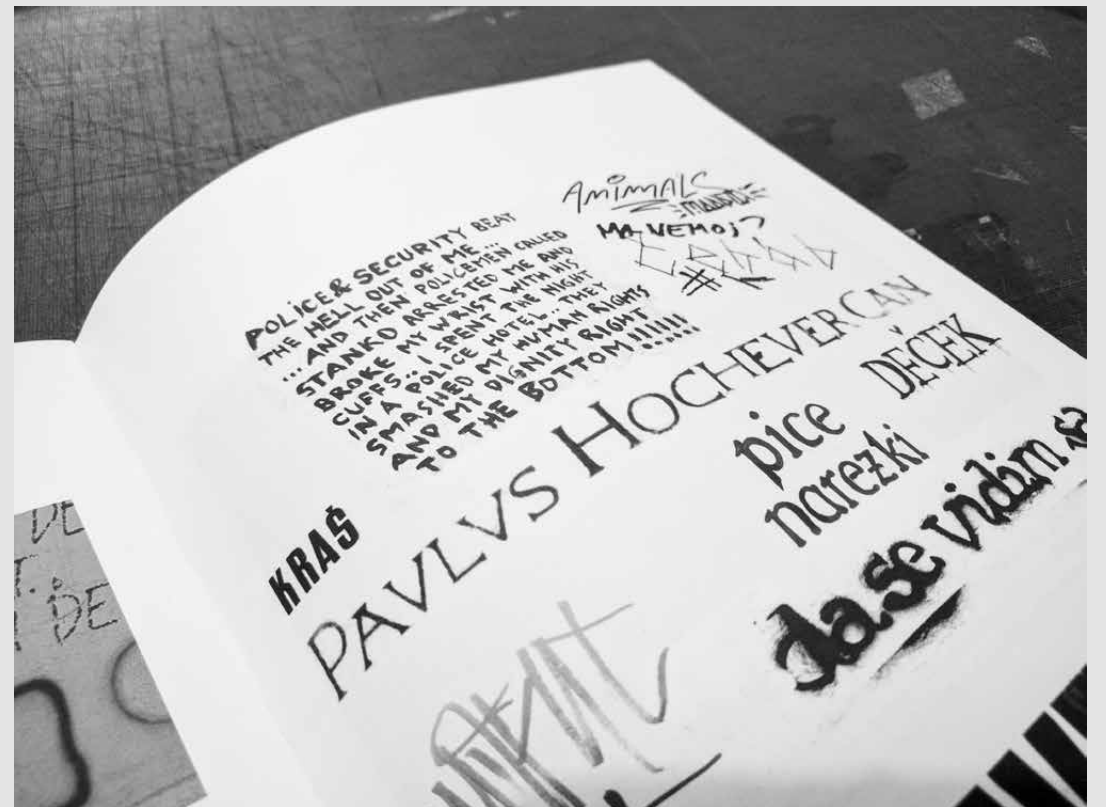 POLICE & SECURITY BEAT
THE HELL OUT OF ME...
...AND THEN POLICEMEN CALLED
STANKO ARRESTED ME AND
BROKE MY WRIST WITH HIS
CUFFS... I SPENT THE NIGHT
IN A POLICE HOTEL... THEY
SMASHED MY HUMAN RIGHTS
AND MY DIGNITY RIGHT
TO THE BOTTOM!!!!!!!
ANIMALS
MA VEMOJ?
KRAŠ
PAVLVS HOCHEVERCAN
DEČEK
pice
narezki
da se vidim
DE